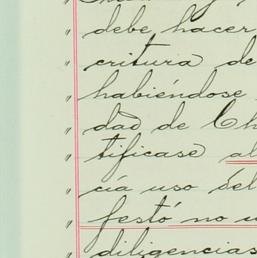 " debe hacer
" critura de
" habiéndose
" dad de Ch
" tificase al
" cía uso del
" festó no u
" diligencias